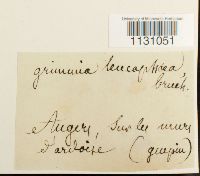 University of Minnesota Herbarium
1131051
grimmia leucophaea,
bruch.
Angers, Sur les murs
d'ardoise (guépin)